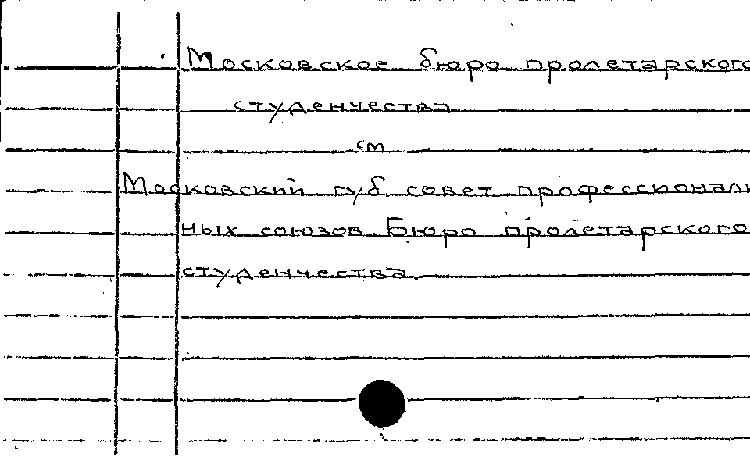 Московское бюро пролетарского
студенчества
см
Московский губ совет профессиональ
ных союзов. Бюро пролетарского
студенчества.